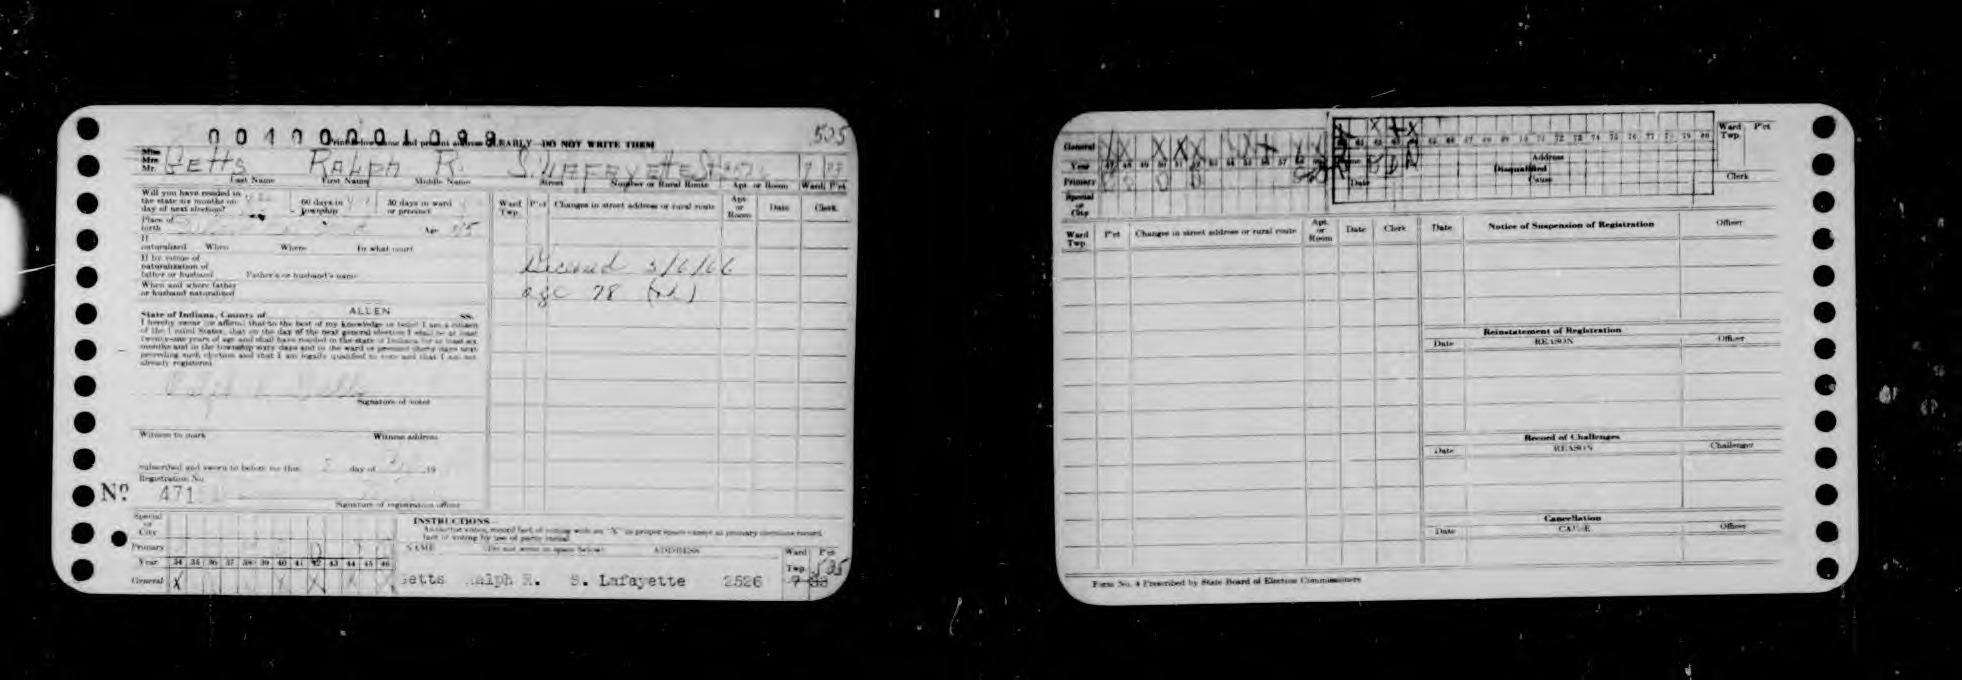 001000001099 505
Print below name and present address CLEARLY—DO NOT WRITE THEM
Miss
Mrs.
Mr. Getts Ralph R. S. Lafayette St 2526 7 33
Last Name First Name Middle Name Street Number or Rural Route Apt. or Room Ward P'ct
Will you have resided in
the state six months on
day of next election?
60 days in
township
30 days in ward
or precinct
Place of
birth
Age
If
naturalized When Where In what court
If by virtue of
naturalization of
father or husband Father's or husband's name
When and where father
or husband naturalized
State of Indiana, County of ALLEN ss.
I hereby swear (or affirm) that to the best of my knowledge or belief I am a citizen
of the United States, that on the day of the next general election I shall be at least
twenty-one years of age and shall have resided in the state of Indiana for at least six
months and in the township sixty days and in the ward or precinct thirty days next
preceding such election and that I am legally qualified to vote and that I am not
already registered.
Ralph R. Getts
Signature of voter
Witness to mark Witness address
Subscribed and sworn to before me this day of 19
Registration No.
No. 471
Signature of registration officer
Ward
Twp. P'ct Changes in street address or rural route Apt.
or
Room Date Clerk
Deceased 3/6/66
age 78
Special
or
City
Primary
Year 34 35 36 37 38 39 40 41 42 43 44 45 46
General X X X X X
INSTRUCTIONS—
As elector votes, record fact of voting with an "X" in proper space except at primary elections record
fact of voting by use of party initial.
NAME (Do not write in space below) ADDRESS Ward
Twp. P'ct
Getts Ralph R. S. Lafayette 2526 7 33 505
General
Year 47 48 49 50 51 52 53 54 55 56 57 58 59
Primary
Special
or
City
65 66 67 68 69 70 71 72 73 74 75 76 77 78 79 80
Address
Disqualified
Date Cause
Ward
Twp. P'ct
Clerk
Ward
Twp. P'ct Changes in street address or rural route Apt.
or
Room Date Clerk
Date Notice of Suspension of Registration Officer
Reinstatement of Registration
Date REASON Officer
Record of Challenges
Date REASON Challenger
Cancellation
Date CAUSE Officer
Form No. 4 Prescribed by State Board of Election Commissioners